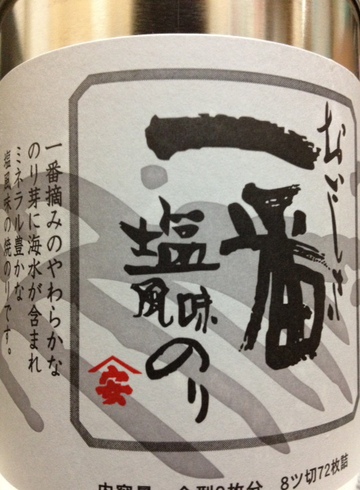 おいしさ
一番
塩風味のり
一番摘みのやわらかな
のり芽に海水が含まれ
ミネラル豊かな
塩風味の焼のりです。
安
内容量 全型9枚分 8ツ切72枚詰